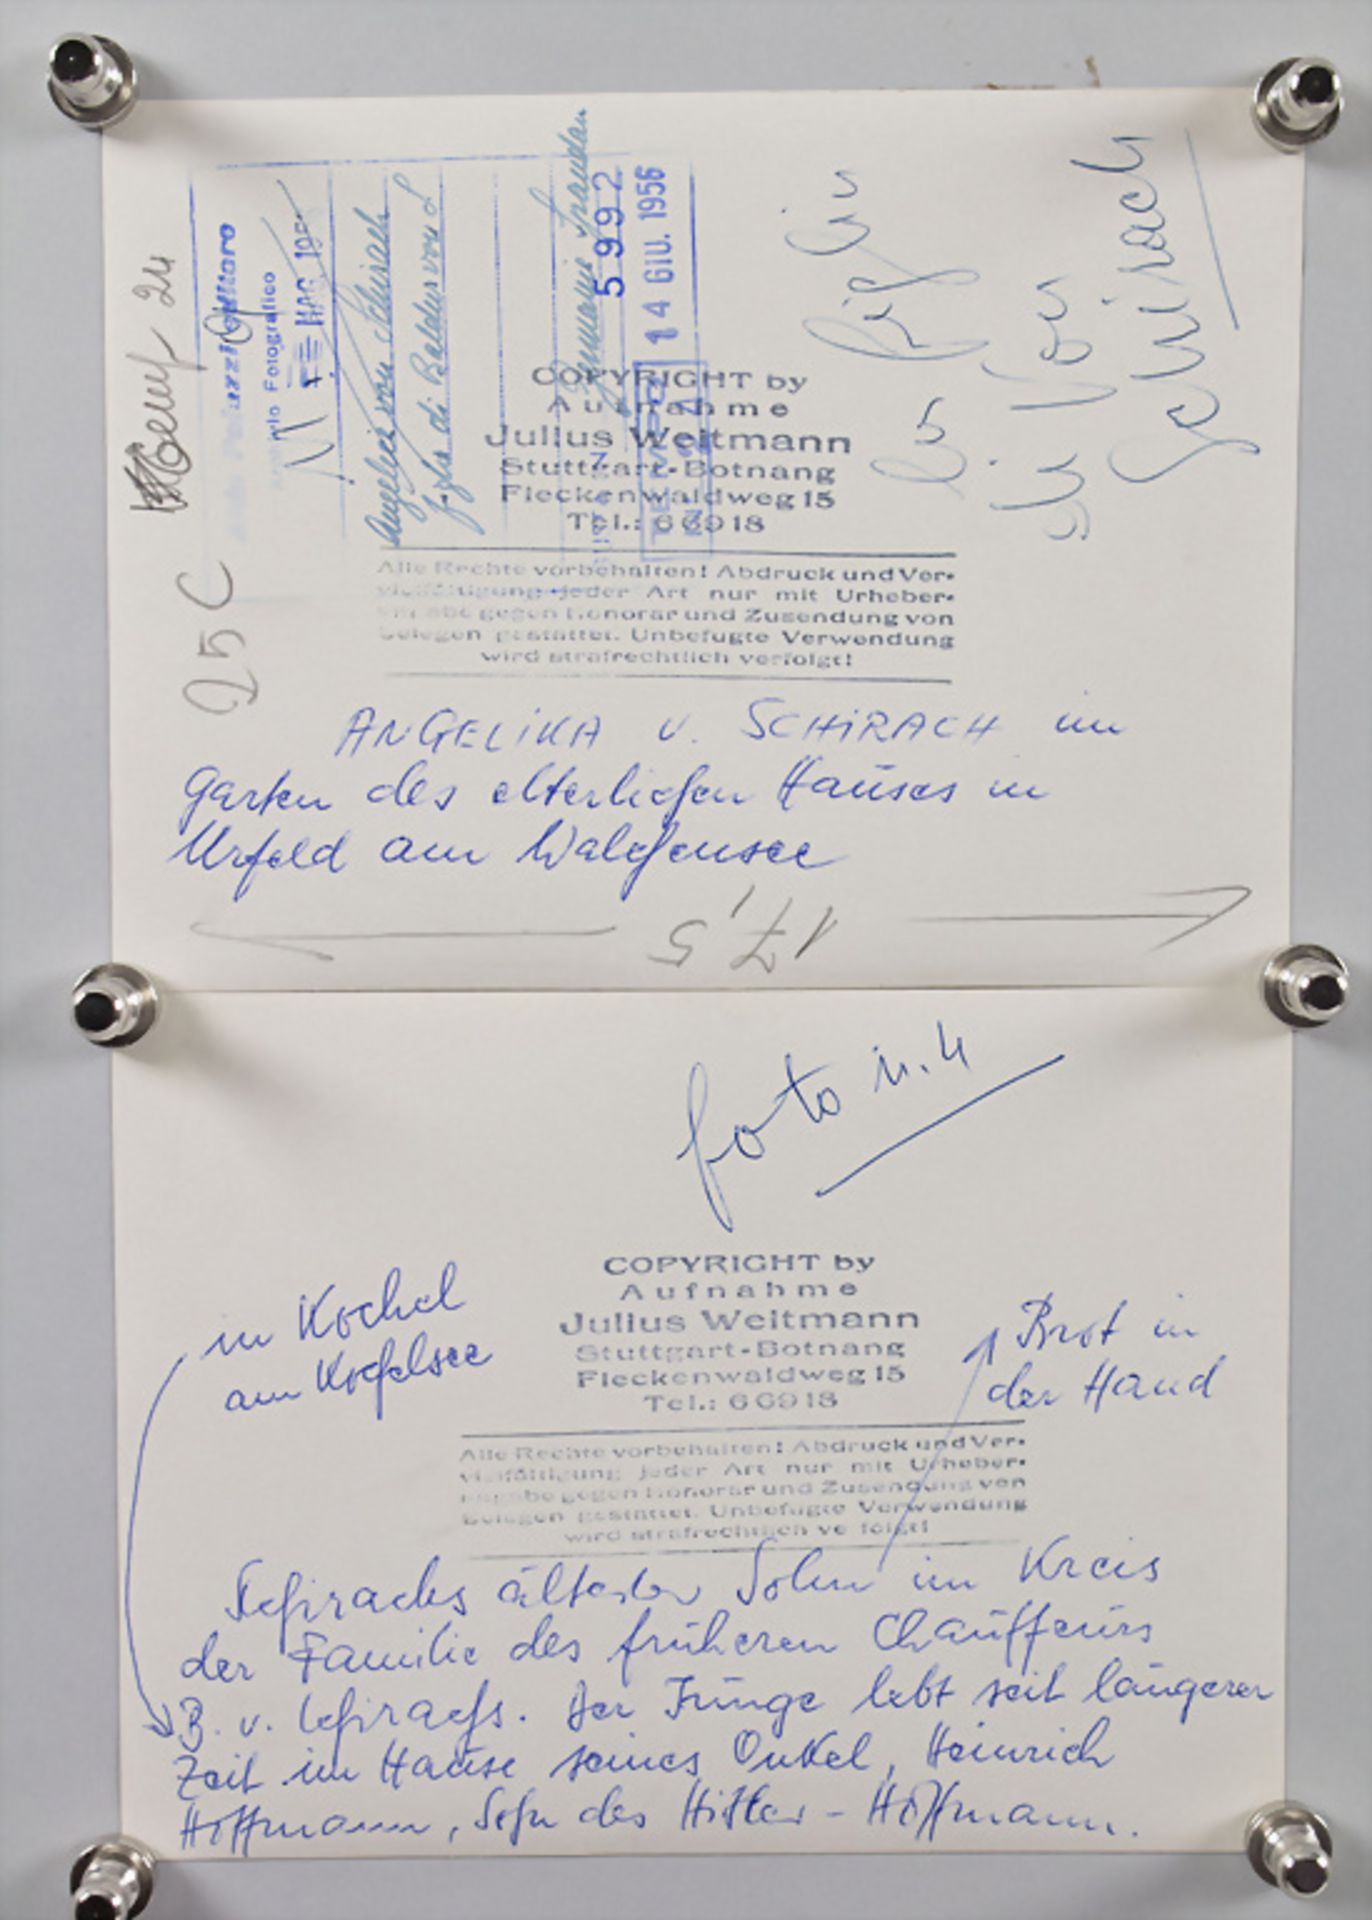 24
25 C
Archivio Fotografico
MAG. 195
Angelica von Schirach
figlia di Baldur von S
Germania Spandau
5992
14 GIU. 1956
TEMPO
Schirach
COPYRIGHT by
Aufnahme
Julius Weitmann
Stuttgart-Botnang
Fleckenwaldweg 15
Tel.: 66918
Alle Rechte vorbehalten! Abdruck und Ver-
vielfältigung jeder Art nur mit Urheber-
angabe gegen Honorar und Zusendung von
Belegen gestattet. Unbefugte Verwendung
wird strafrechtlich verfolgt!
ANGELIKA v. SCHIRACH im
Garten des elterlichen Hauses in
Urfeld am Walchensee
17,5
foto n. 4
in Kochel
am Kochelsee
COPYRIGHT by
Aufnahme
Julius Weitmann
Stuttgart-Botnang
Fleckenwaldweg 15
Tel.: 66918
Brot in
der Hand
Alle Rechte vorbehalten! Abdruck und Ver-
vielfältigung jeder Art nur mit Urheber-
angabe gegen Honorar und Zusendung von
Belegen gestattet. Unbefugte Verwendung
wird strafrechtlich ve folgt!
Schirachs ältester Sohn im Kreis
der Familie des früheren Chauffeurs
B. v. Schirachs. Der Junge lebt seit längerer
Zeit im Hause seines Onkel, Heinrich
Hoffmann, Sohn des Hitler-Hoffmann.